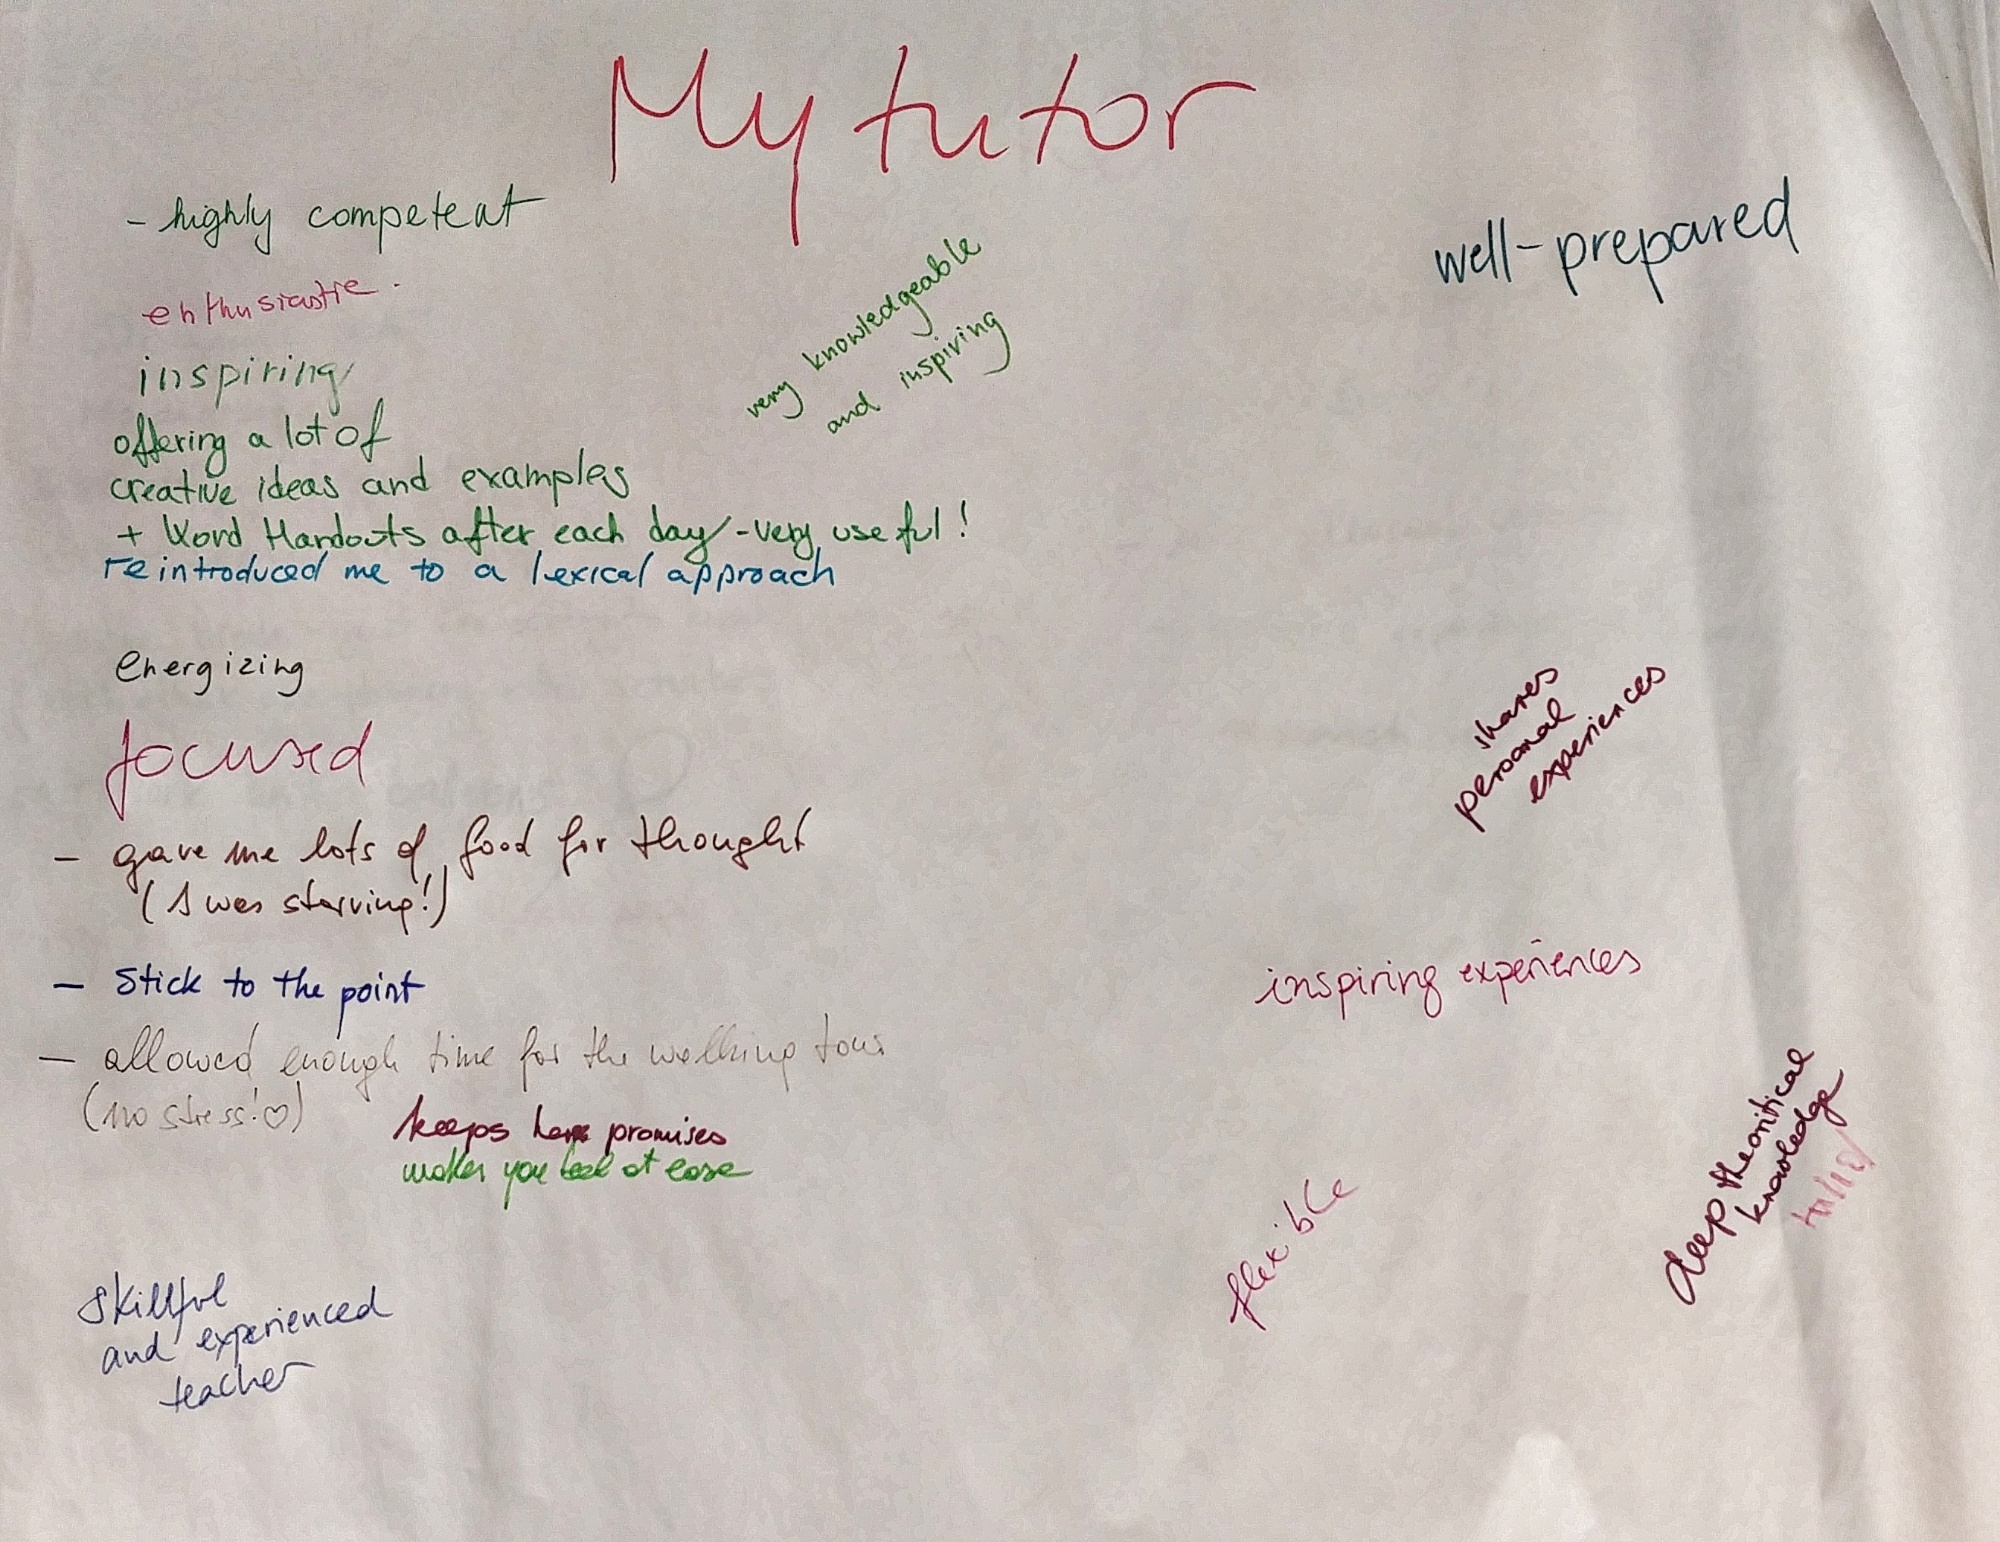 My tutor
- highly competent
enthusiastic.
inspiring
offering a lot of
creative ideas and examples
+ Word Handouts after each day - very useful!
reintroduced me to a lexical approach
energizing
focused
- gave me lots of food for thought
(I was starving!)
- Stick to the point
- allowed enough time for the walking tour
(no stress! ♡)
keeps promises
makes you feel at ease
skillful
and experienced
teacher
very knowledgeable
and inspiring
well-prepared
shares
personal
experiences
inspiring experiences
flexible
deep theoritical
knowledge